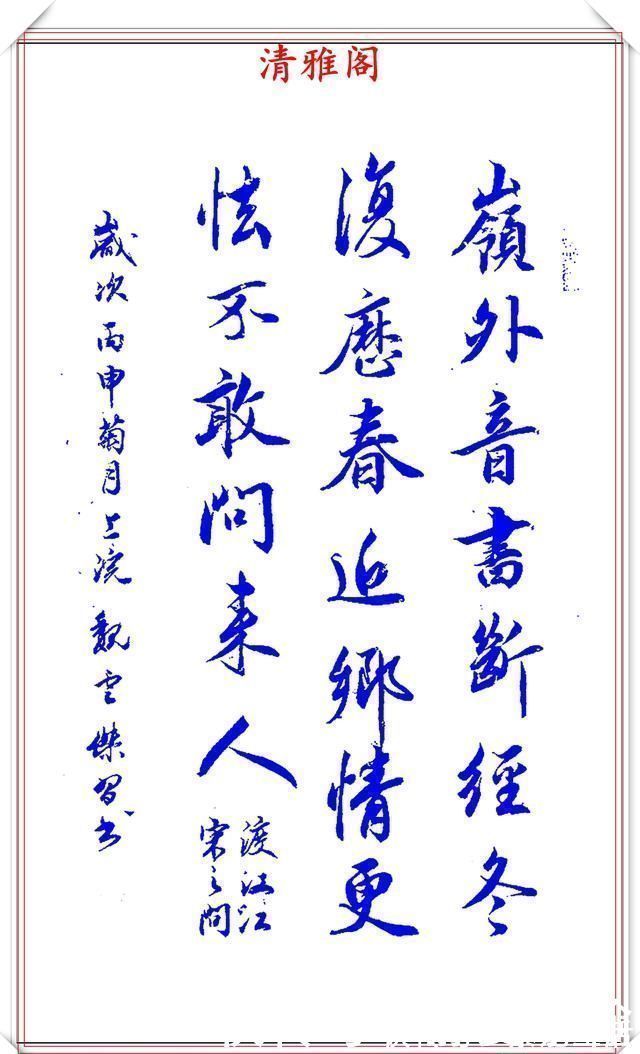 清雅阁
嶺外音書斷經冬
復歷春近鄉情更
怯不敢問来人
渡江江
宋之問
歲次丙申菊月上浣魏云傑習书